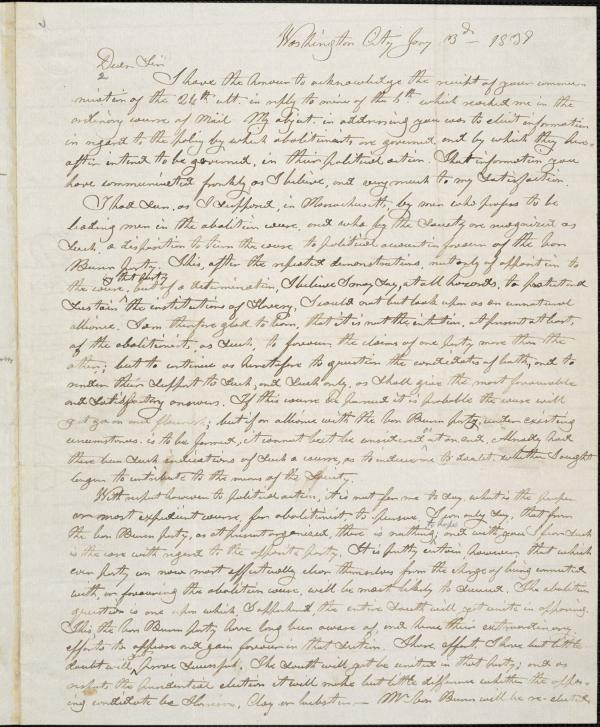 Washington City Jany 3d. 1839
Dear Sir
I have the honour to acknowledge the receipt of your commu-
nication of the 26th ult. in reply to mine of the 6th which reached me in the
ordinary course of Mail My object in addressing you was to elicit information
in regard to the policy by which abolitionists are governed and by which they here-
after intend to be governed, in their political action. That information you
have communicated frankly, as I believe, and very much to my satisfaction.
I had seen, as I supposed, in Massachusetts, by men who profess to be
leading men in the abolition cause, and who by the Society are recognized as
such, a disposition to turn the cause to political account in favour of the Van
Buren party. This, after the repeated demonstrations, not only of opposition to
the cause, by that party but of a determination, I believe I may say, at all hazards, to
sustain the institutions of Slavery, I could not but look upon as an unnatural
alliance. I am therefore glad to learn, that it is not the intention, at present at least,
of the abolitionists, as such, to favour the claims of one party more than the
other; but to continue as heretofore to question the candidates of both, and to
render their support to such, and such only, as shall give the most favourable
and satisfactory answers. If this course be pursued it is probable the cause will
yet gain and flourish; but if an alliance with the Van Buren party, under existing
circumstances, is to be formed, it cannot but be considered at an end. Already had
there been such indications of such a course, as to induce me to doubt, whether I ought
longer to contribute to the means of the Society.
With respect however to political action, it is not for me to say, what is the proper
or most expedient course, for abolitionists to pursue. I can only say, that from
the Van Buren party, as at present organized, there is nothing to hope and with you I fear such
is the case with regard to the opposite party. It is pretty certain however, that which
ever party can now most effectually clear themselves from the charge of being connected
with, or favouring the abolition cause, will be most likely to succeed. The abolition
question is one upon which I apprehend the entire South will yet unite in opposing.
This, the Van Buren party have long been aware of and hence their extraordinary
efforts to oppose and gain favour in that section. These effort, I have but little
doubt will prove successful. The South will yet be united in that party, and as
respects the presidential election it will make but little difference whether the oppo-
sing candidate be Harrison, Clay or Webster — Mr Van Buren will be re-elected